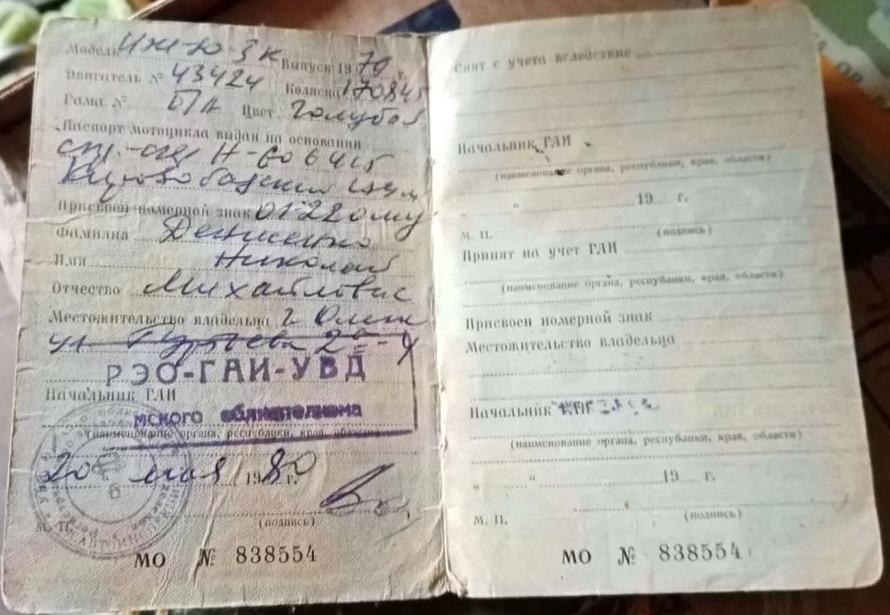 Модель ИЖ-Ю-3К Выпуск 1979 г.
Двигатель № 43424 Коляска 170845
Рама № Б/Н Цвет Голубой
Паспорт мотоцикла выдан на основании
Н-606415
Присвоен номерной знак 0122 ому
Фамилия Денисенко
Имя Николай
Отчество Михайлович
Местожительство владельца г. Омск
ул.
РЭО-ГАИ-УВД
Начальник ГАИ
мского облисполкома
(наименование органа, республики, края, области)
20 мая 1980 г.
М. П. (подпись)
МО № 838554
Снят с учета вследствие
Начальник ГАИ
(наименование органа, республики, края, области)
" " 19 г.
М. П. (подпись)
Принят на учет ГАИ
(наименование органа, республики, края, области)
Присвоен номерной знак
Местожительство владельца
Начальник
(наименование органа, республики, края, области)
" " 19 г.
М. П. (подпись)
МО № 838554